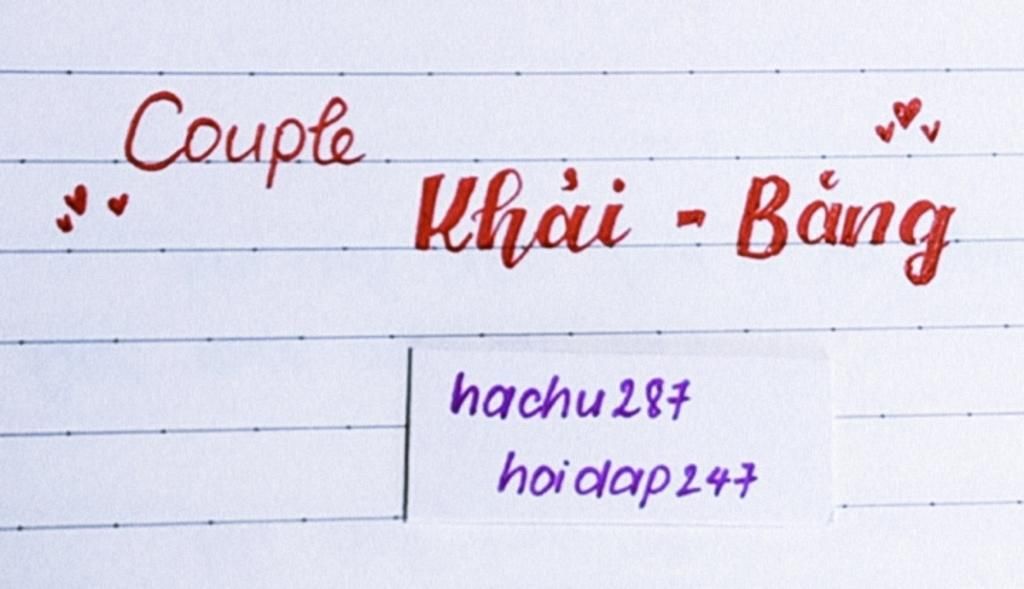 Couple
Khải - Băng
hachu287
hoidap247